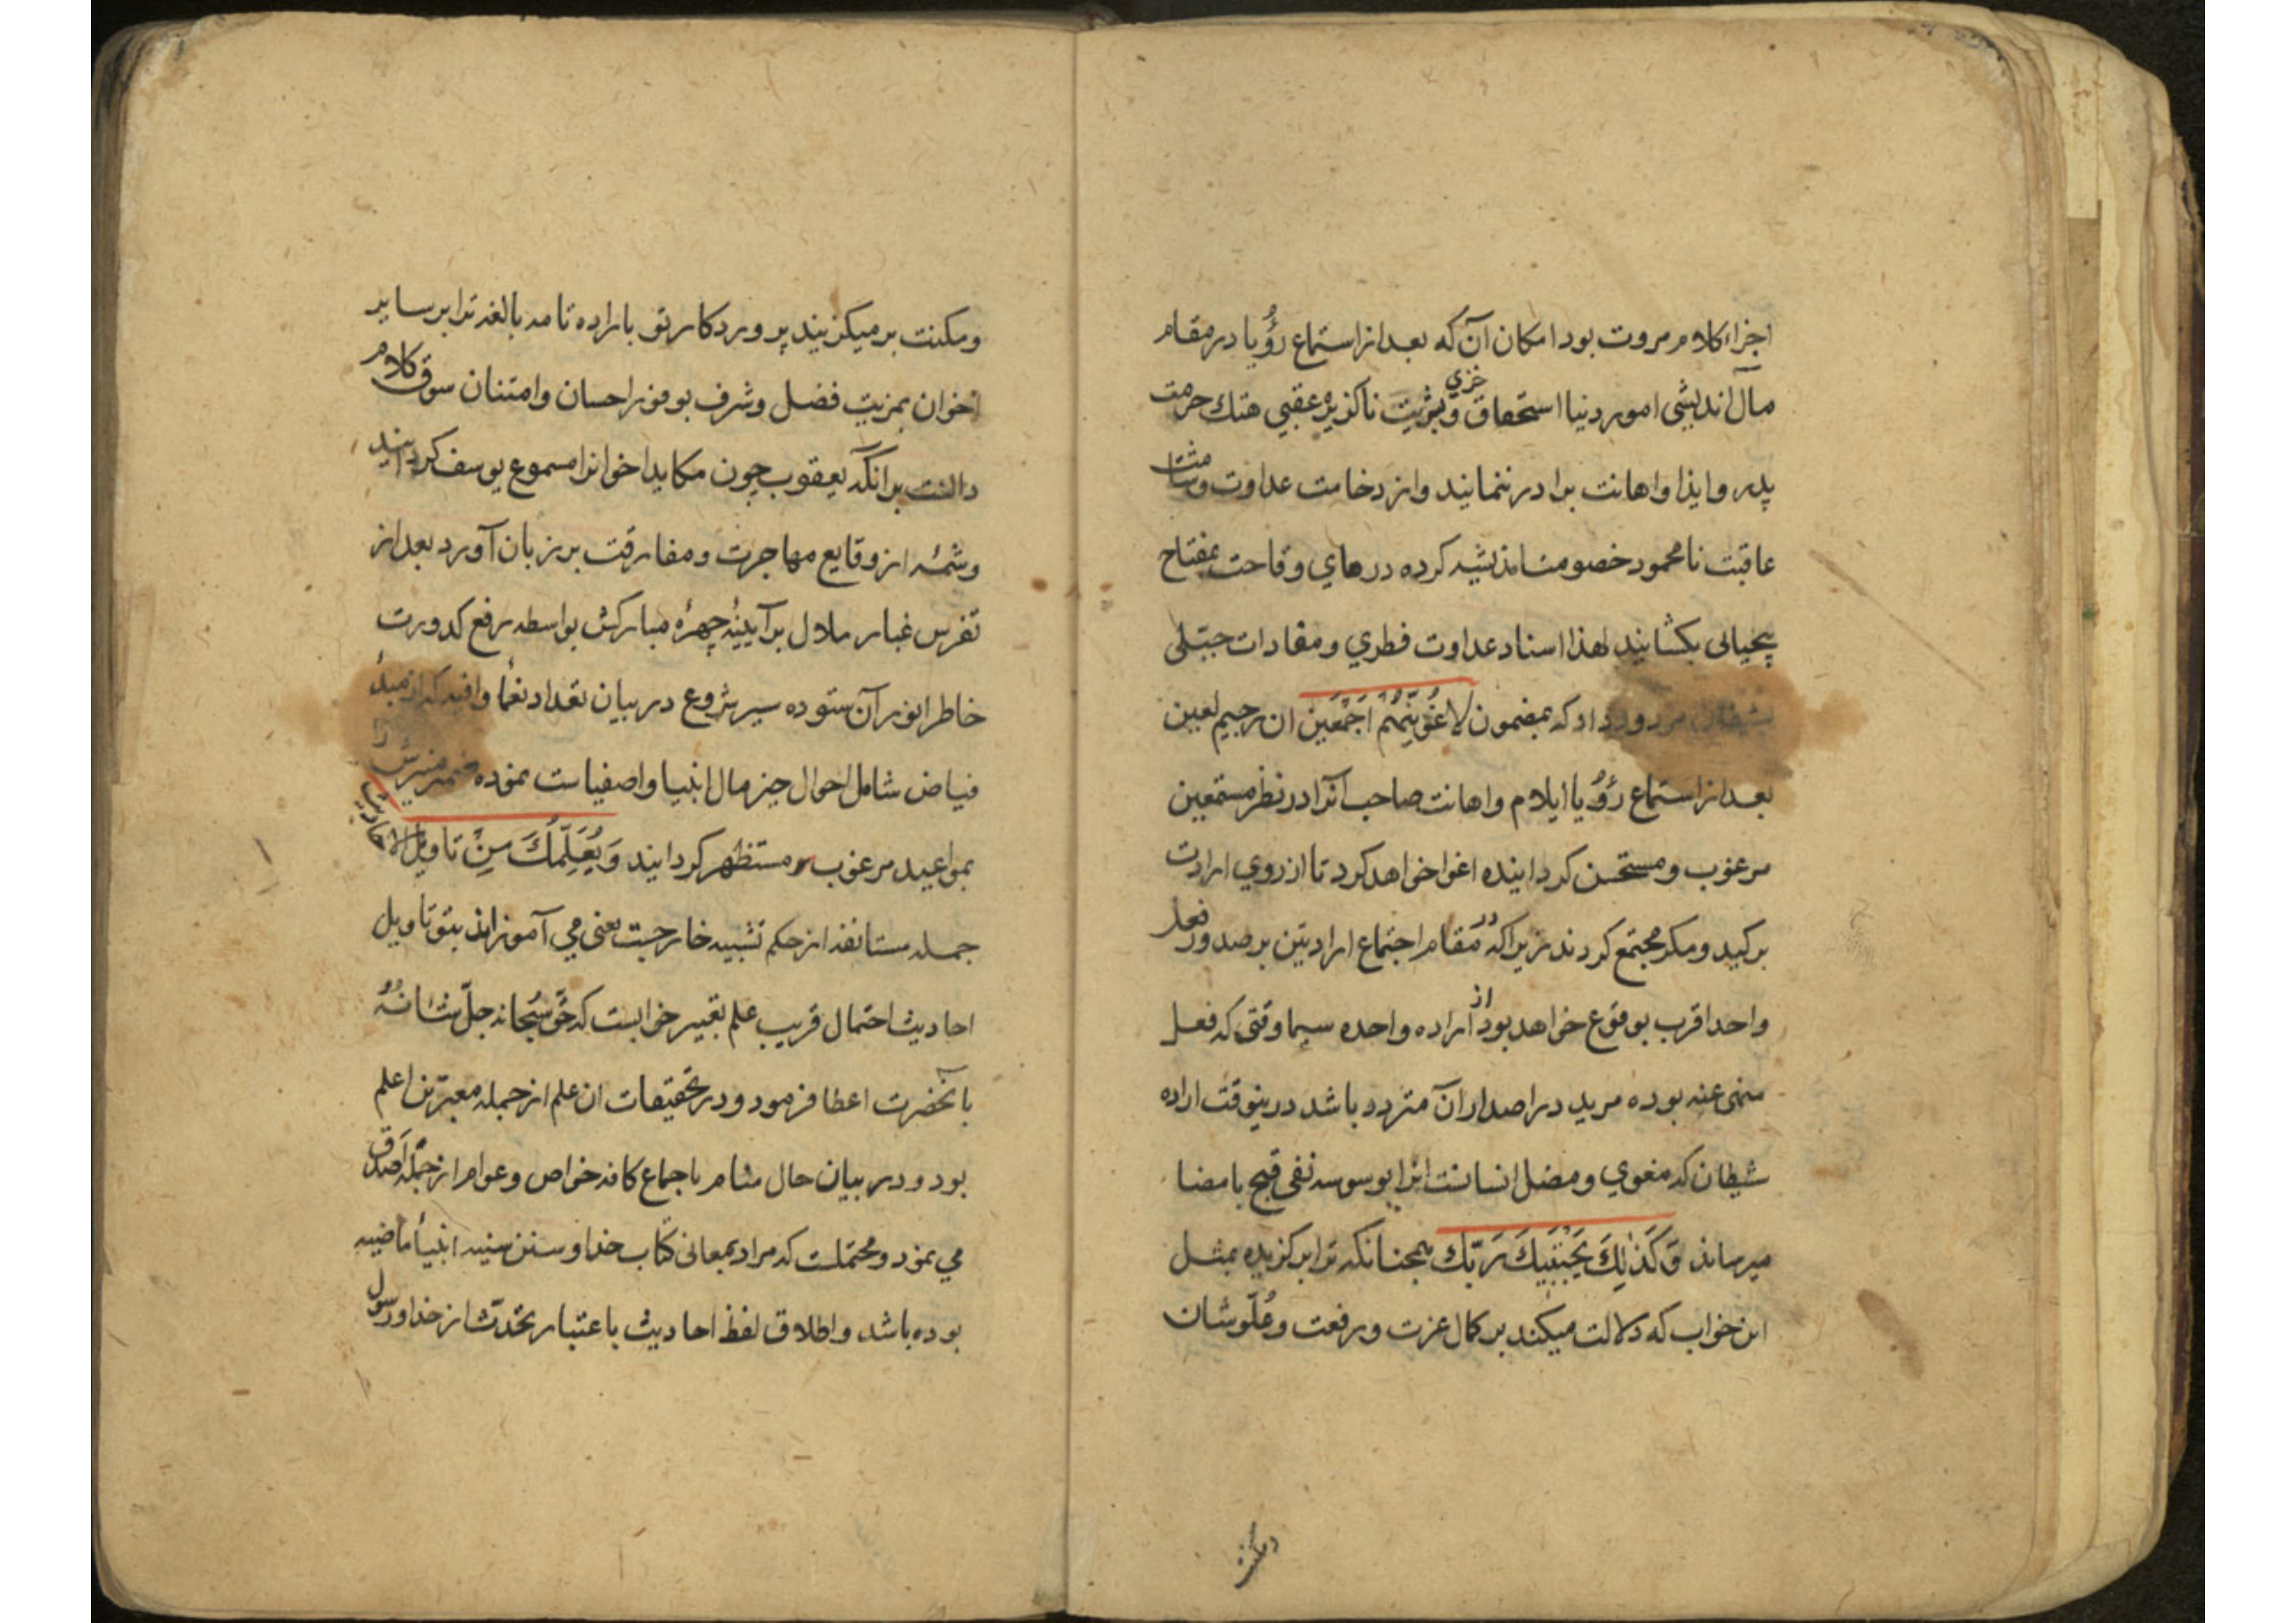 اجزاء کلام مروت بود امکان آن که بعد از استماع رؤیا در مقام
مآل اندیشی امور دنیا استحقاق خزی و ناکزیره عقبی هتك حرمت
پدر و ایذا و اهانت برادر ننمایند و از دخامت عداوت و
عاقبت نامحمود خصومت اندیشه کرده درهای وقاحت بمفتاح
بیحیائی بکشایند لهذا اسناد عداوت فطری و مقادات جبلی
بشیطان مردود داد که بمضمون لاغوینهم اجمعین ان رجیم لعین
بعد از استماع رؤیا ایلام و اهانت صاحب آنرا در نظر مستمعین
مرغوب و مستحسن کردانیده اغوا خواهد کرد تا از روی ارادت
بر کید و مکر مجتمع کردند زیرا که در مقام اجتماع ارادتین بر صدور فعل
واحد اقرب بوقوع خواهد بود از اراده واحده سیما وقتی که فعل
منهی عنه بوده مرید در اصدار آن متردد باشد درینوقت اراده
شیطان که مغوی و مضل انسانست انرا بوسوسه نفی قبح بامضا
میرساند وَكَذٰلِكَ يَجْتَبِيكَ رَبُّكَ همچنانکه ترا برکزیده بمثل
این خواب که دلالت میکند بر کمال عزت و رفعت و عُلّو شان
ومکنت
ومکنت بر میکزیند پروردکار تو باراده تامه بالغه ترا بر سایر
اخوان بمزیت فضل و شرف بوفور احسان و امتنان سوق کلام
دالست برانکه یعقوب چون مکاید اخوانرا مسموع یوسف کردانید
و شمۀ از وقایع مهاجرت و مفارقت بر زبان آورد بعد از
تفرس غبار ملال بر آیینۀ چهرۀ مبارکش بواسطه رفع کدورت
خاطر انور آن ستوده سیر شروع در بیان تعداد نعمأ وافیه که از مبدأ
فیاض شامل احوال خیر مال انبیا و اصفیاست نموده ضمیر منیرش را
بمواعید مرغوب مستظهر کردانید وَيُعَلِّمُكَ مِنْ تَاویل الاحادیث
جمله مستانفه از حکم تشبیه خارجست یعنی می آموزاند بتو تاویل
احادیث احتمال قریب علم تعبیر خوابست که حق سُبحانه جلّ شانهُ
بآنحضرت اعطا فرمود و در تحقیقات ان علم از جمله معبّرین اعلم
بود و در بیان حال منام باجماع کافه خواص و عوام از جمله اصدق
می نمود و محتملست که مراد بمعانی کتاب خدا و سنن سنیه انبیأ ماضیه
بوده باشد و اطلاق لفظ احادیث باعتبار تحدّث از خدا و رسول